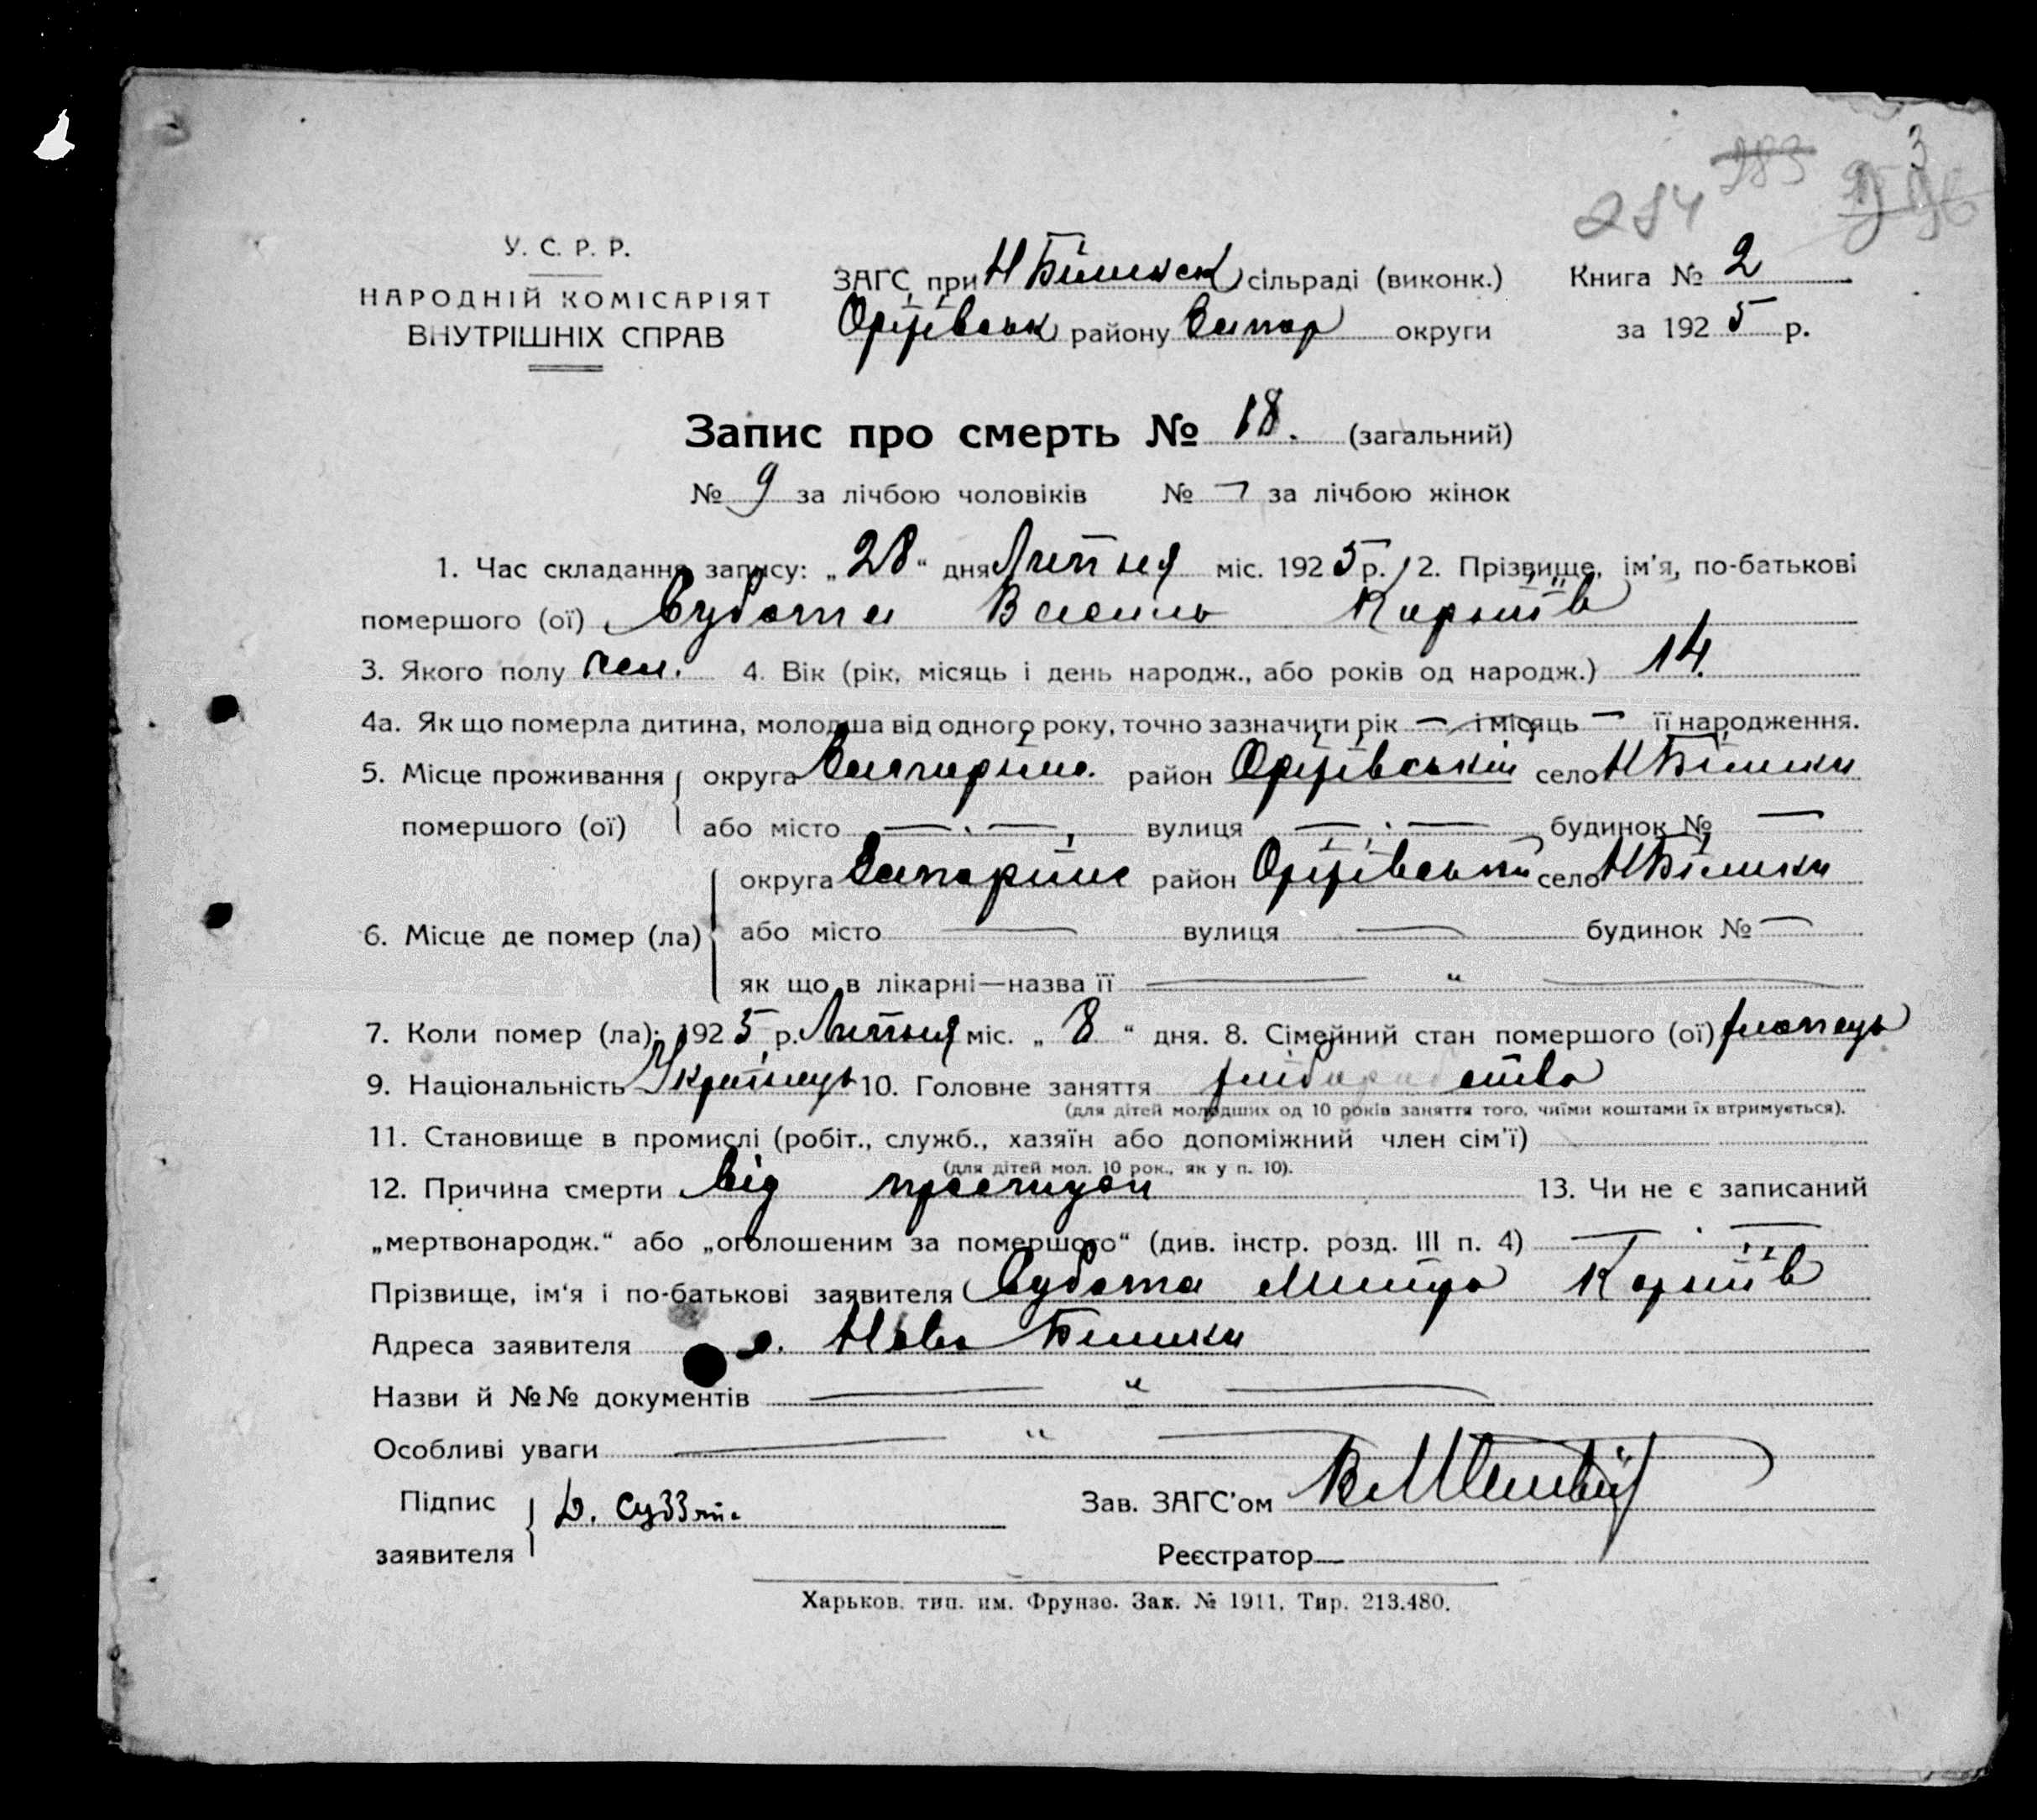 283 3
284
У. С. Р. Р.
НАРОДНІЙ КОМІСАРІЯТ
ВНУТРІШНІХ СПРАВ
ЗАГС при сільраді (виконк.)
Оріхівськ району Запор округи
Книга № 2
за 1925 р.
Запис про смерть № 18. (загальний)
№ 9 за лічбою чоловіків № — за лічбою жінок
1. Час складання запису: „28“ дня Липня міс. 1925 р. 2. Прізвище, ім'я, по-батькові
помершого (ої) Субота Василь Корніїв
3. Якого полу чол. 4. Вік (рік, місяць і день народж., або років од народж.) 14
4а. Як що померла дитина, молодша від одного року, точно зазначити рік — і місяць — її народження.
5. Місце проживання округа район Оріхівський село
помершого (ої) або місто — . — вулиця — . — будинок № —
округа район Оріхівський село
6. Місце де помер (ла) або місто — вулиця — будинок № —
як що в лікарні—назва її — " —
7. Коли помер (ла): 1925 р. Липня міс. „8“ дня. 8. Сімейний стан помершого (ої) хлопець
9. Національність Українець 10. Головне заняття хліборобство
(для дітей молодших од 10 років заняття того, чиїми коштами їх втримується).
11. Становище в промислі (робіт., служб., хазяїн або допоміжний член сім'ї)
(для дітей мол. 10 рок., як у п. 10).
12. Причина смерти від простуди 13. Чи не є записаний
„мертвонародж.“ або „оголошеним за помершого“ (див. інстр. розд. III п. 4) — . —
Прізвище, ім'я і по-батькові заявителя Субота Митро Корніїв
Адреса заявителя с. Ново
Назви й №№ документів — " —
Особливі уваги — " —
Підпис
заявителя Д.
Зав. ЗАГС'ом
Реєстратор —
Харьков. тип. им. Фрунзе. Зак. № 1911. Тир. 213.480.